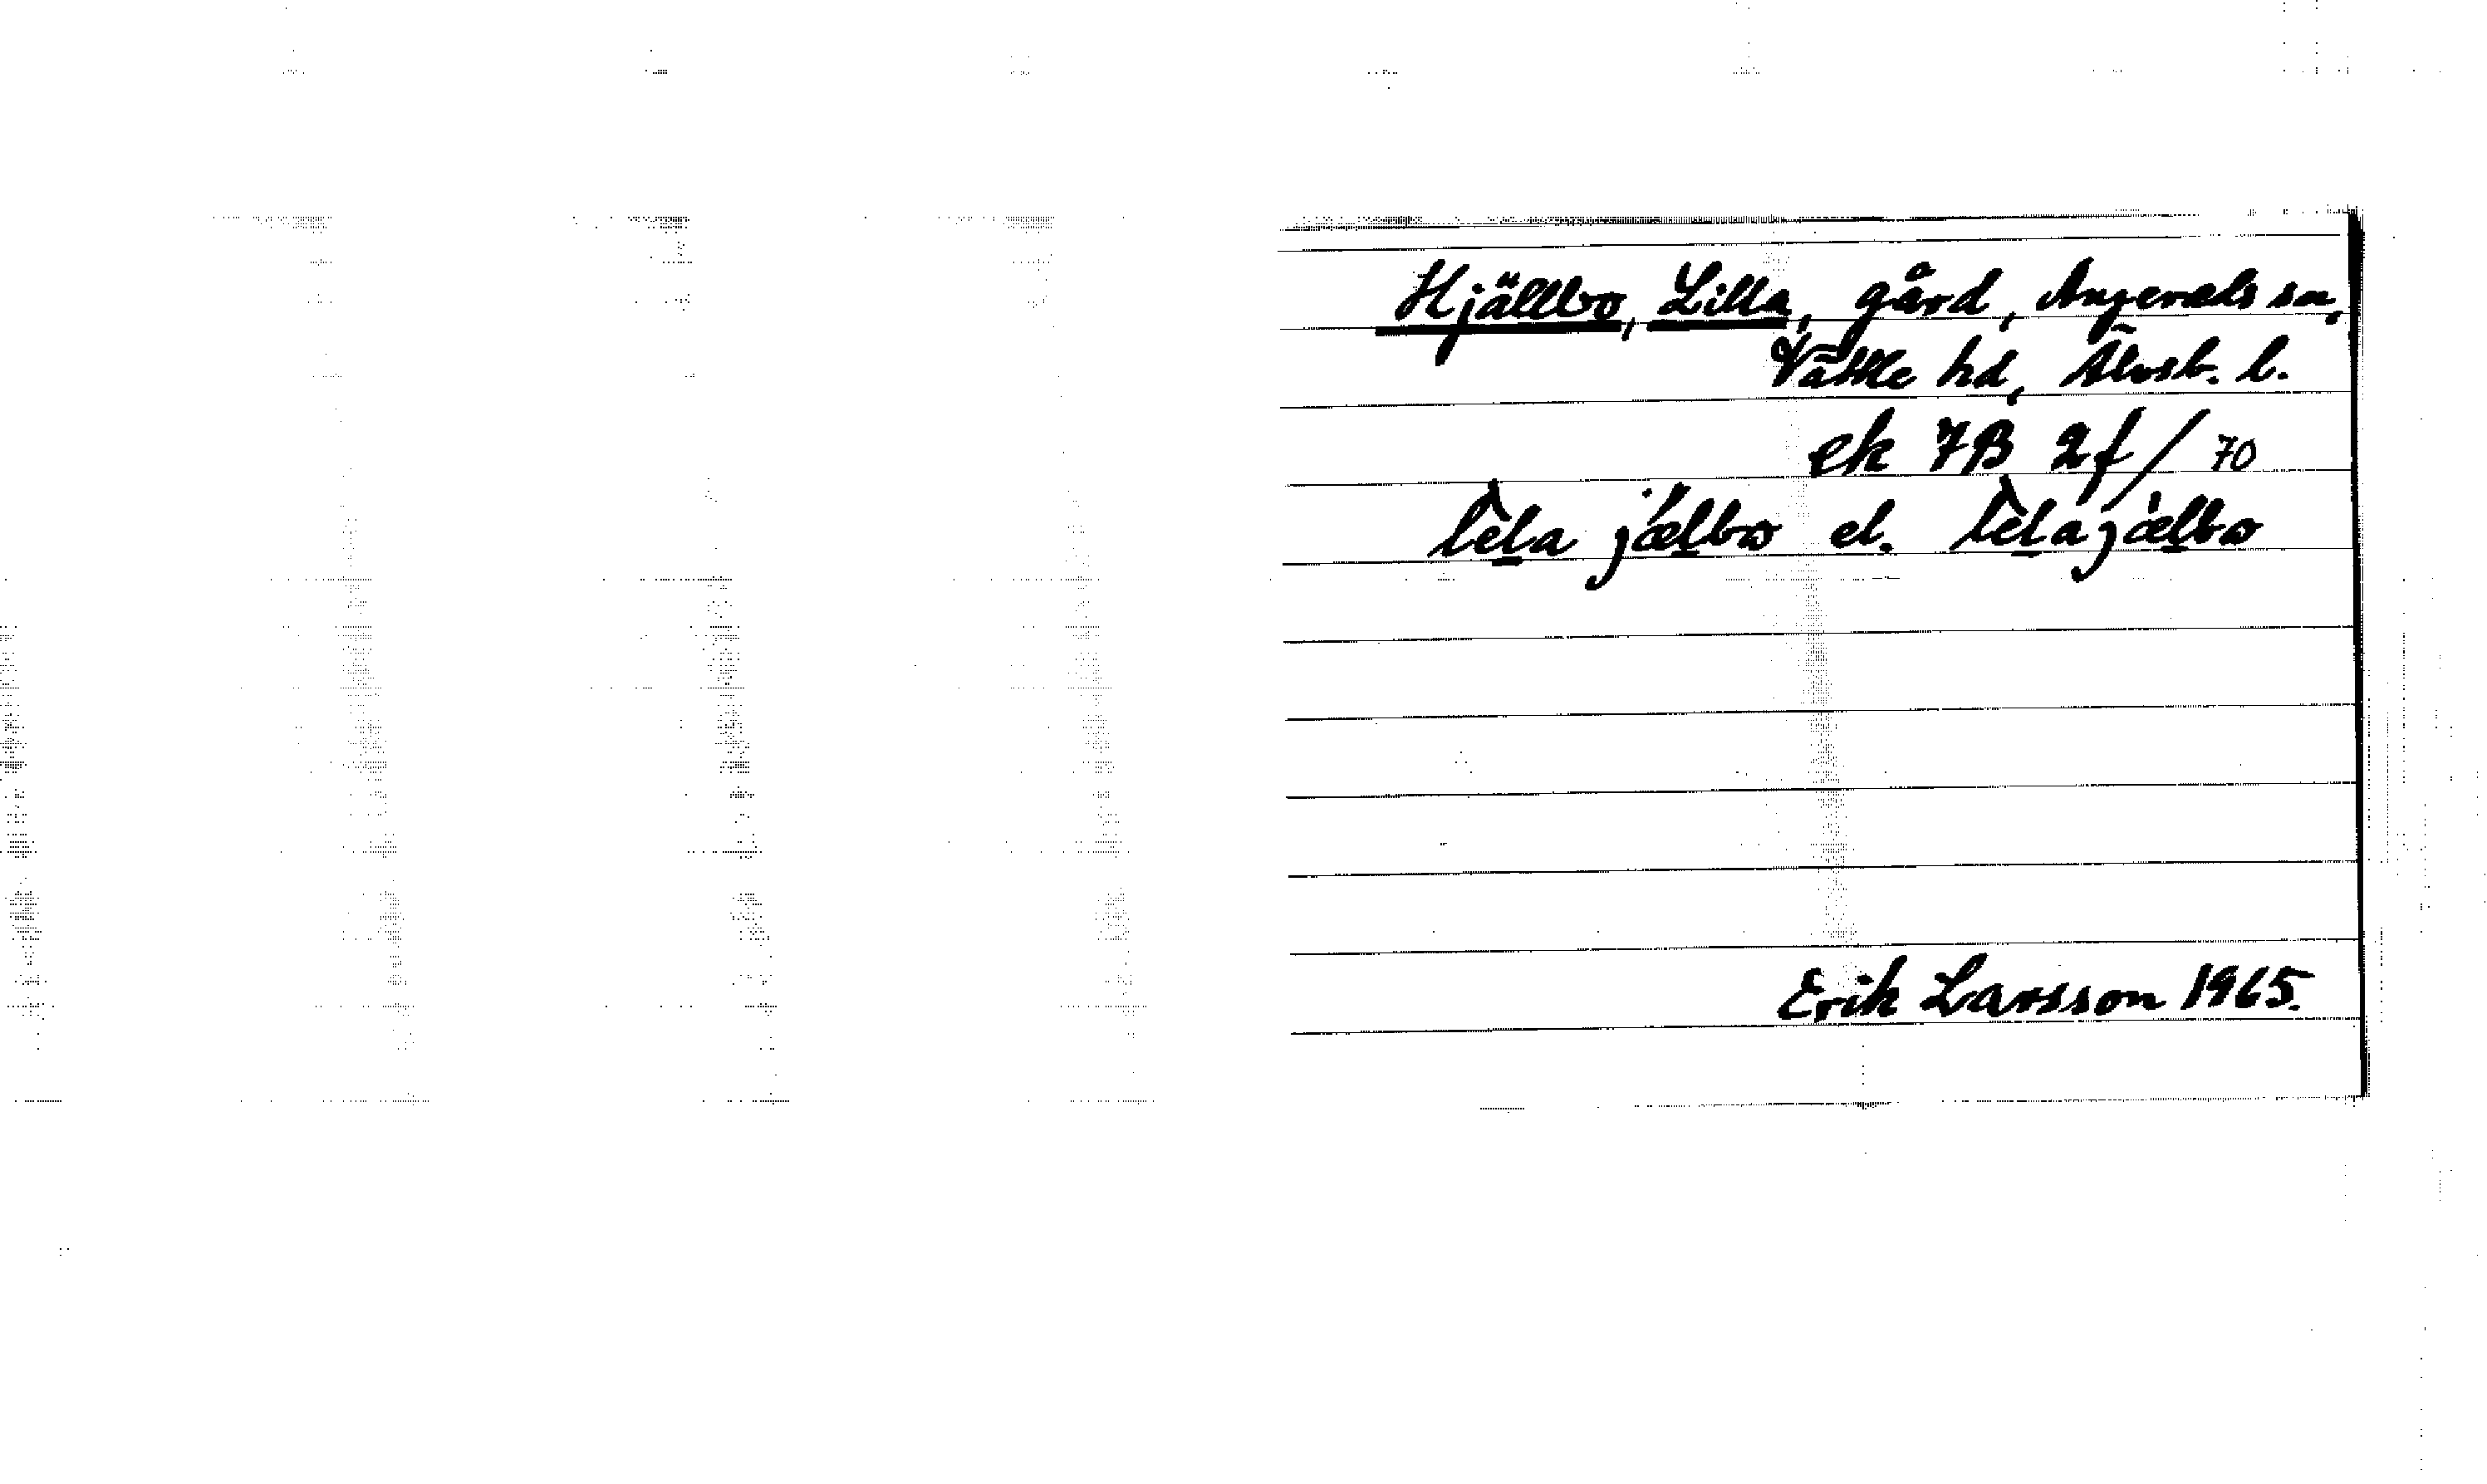 Hjällbo, Lilla, gård, Angereds sn,
Vättle hd, Älvsb. l.
ek 7B 2f/70
lela jælbo el. lelajælbo
Erik Larsson 1965.